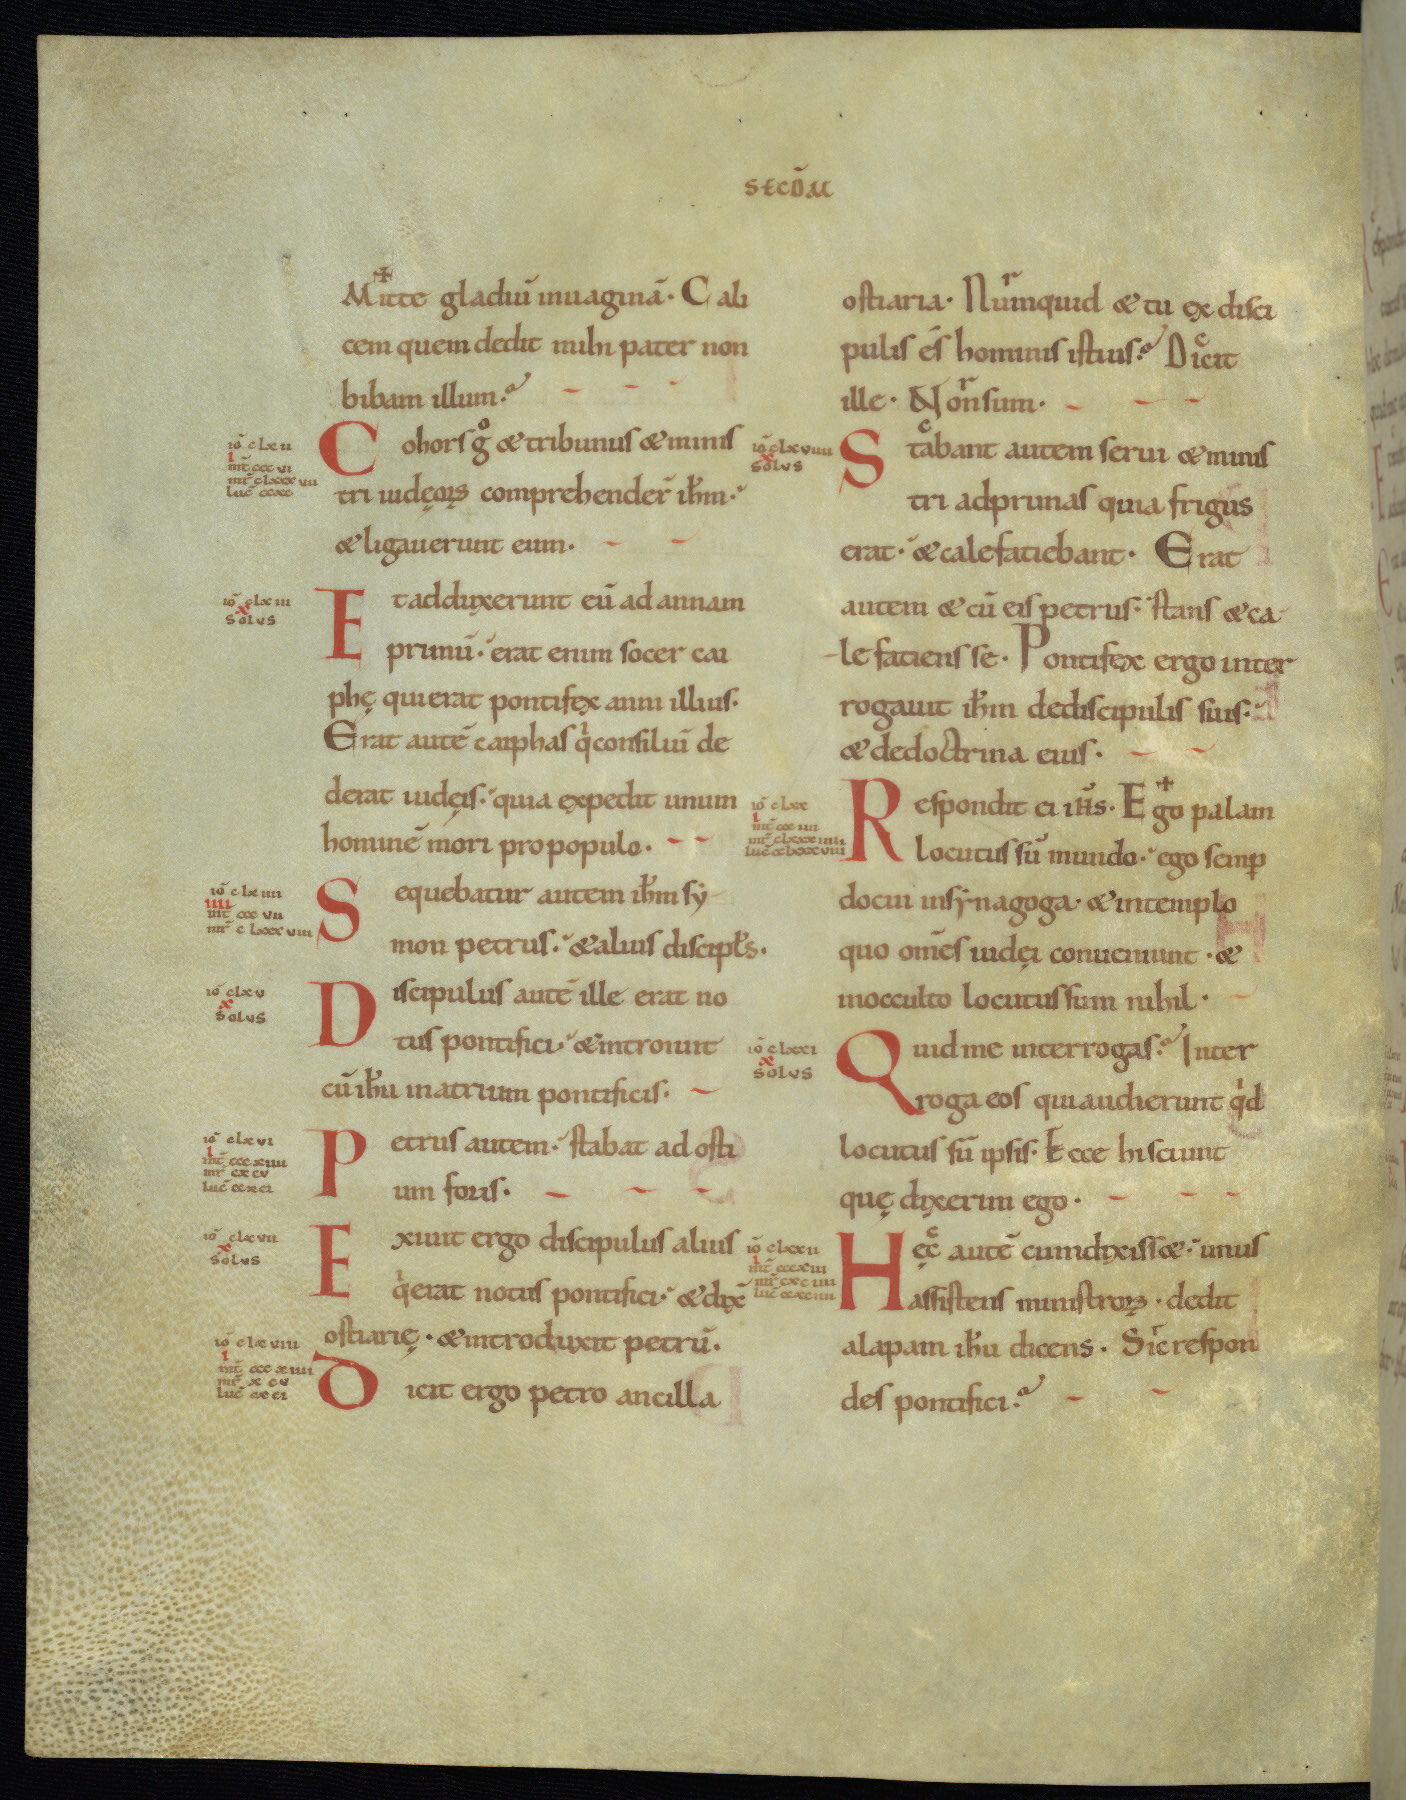 SECD̄M
Mitte gladiū inuaginā· Cali
cem quem dedit mihi pater non
bibam illum·
iō clxii
i
mt̄ ccc vi
mr̄ clxxx vii
luc̄ cc xc
Cohors gͦ & tribunus & minis
tri iudęoꝝ comprehender̄ ih̄m·
& ligauerunt eum·
iō clxiii
x
solus
Et adduxerunt eū ad annam
primū· erat enim socer cai
phę qui erat pontifex anni illius·
Erat autē caiphas qͥ consiliū de
derat iudęis· quia expedit unum
hominē mori pro populo·
iō clxiiii
iiii
mt̄ ccc vii
mr̄ c lxxx viii
Sequebatur autem ih̄m sẏ
mon petrus· & alius discipl̄s·
iō clxv
x
solus
Discipulus autē ille erat no
tus pontifici· & introiuit
cū ih̄u in atrium pontificis·
iō clxvi
i
Petrus autem· stabat ad osti
um foris·
iō clxvii
x
solus
Exiuit ergo discipulus alius
qͥ erat notus pontifici· & dix̄
ostiarię· & introduxit petrū·
iō clxviii
i
Dicit ergo petro ancilla
ostiaria· Numquid & tu ex disci
pulis es hominis istius· Dicit
ille· Non sum·
iō clxviiii
x
solus
Stabant autem serui & minis
tri ad prunas quia frigus
erat· & calefatiebant· Erat
autem & cū eis petrus· stans & ca
lefatiens se· Pontifex ergo inter
rogauit ih̄m de discipulis suis·
& de doctrina eius·
iō clxx
i
Respondit ei ih̄s· Ego palam
locutus sū mundo· ego semꝑ
docui in sẏnagoga· & in templo
quo om̄es iudęi conueniunt· &
in occulto locutus sum nihil·
iō clxxi
x
solus
Quid me interrogas· Inter
roga eos qui audierunt qͥd
locutus sū ipsis· Ecce hi sciunt
quę dixerim ego·
iō clxxii
i
Hęc autē cum dixiss&· unus
assistens ministroꝝ· dedit
alapam ih̄u dicens· Sic respon
des pontifici·